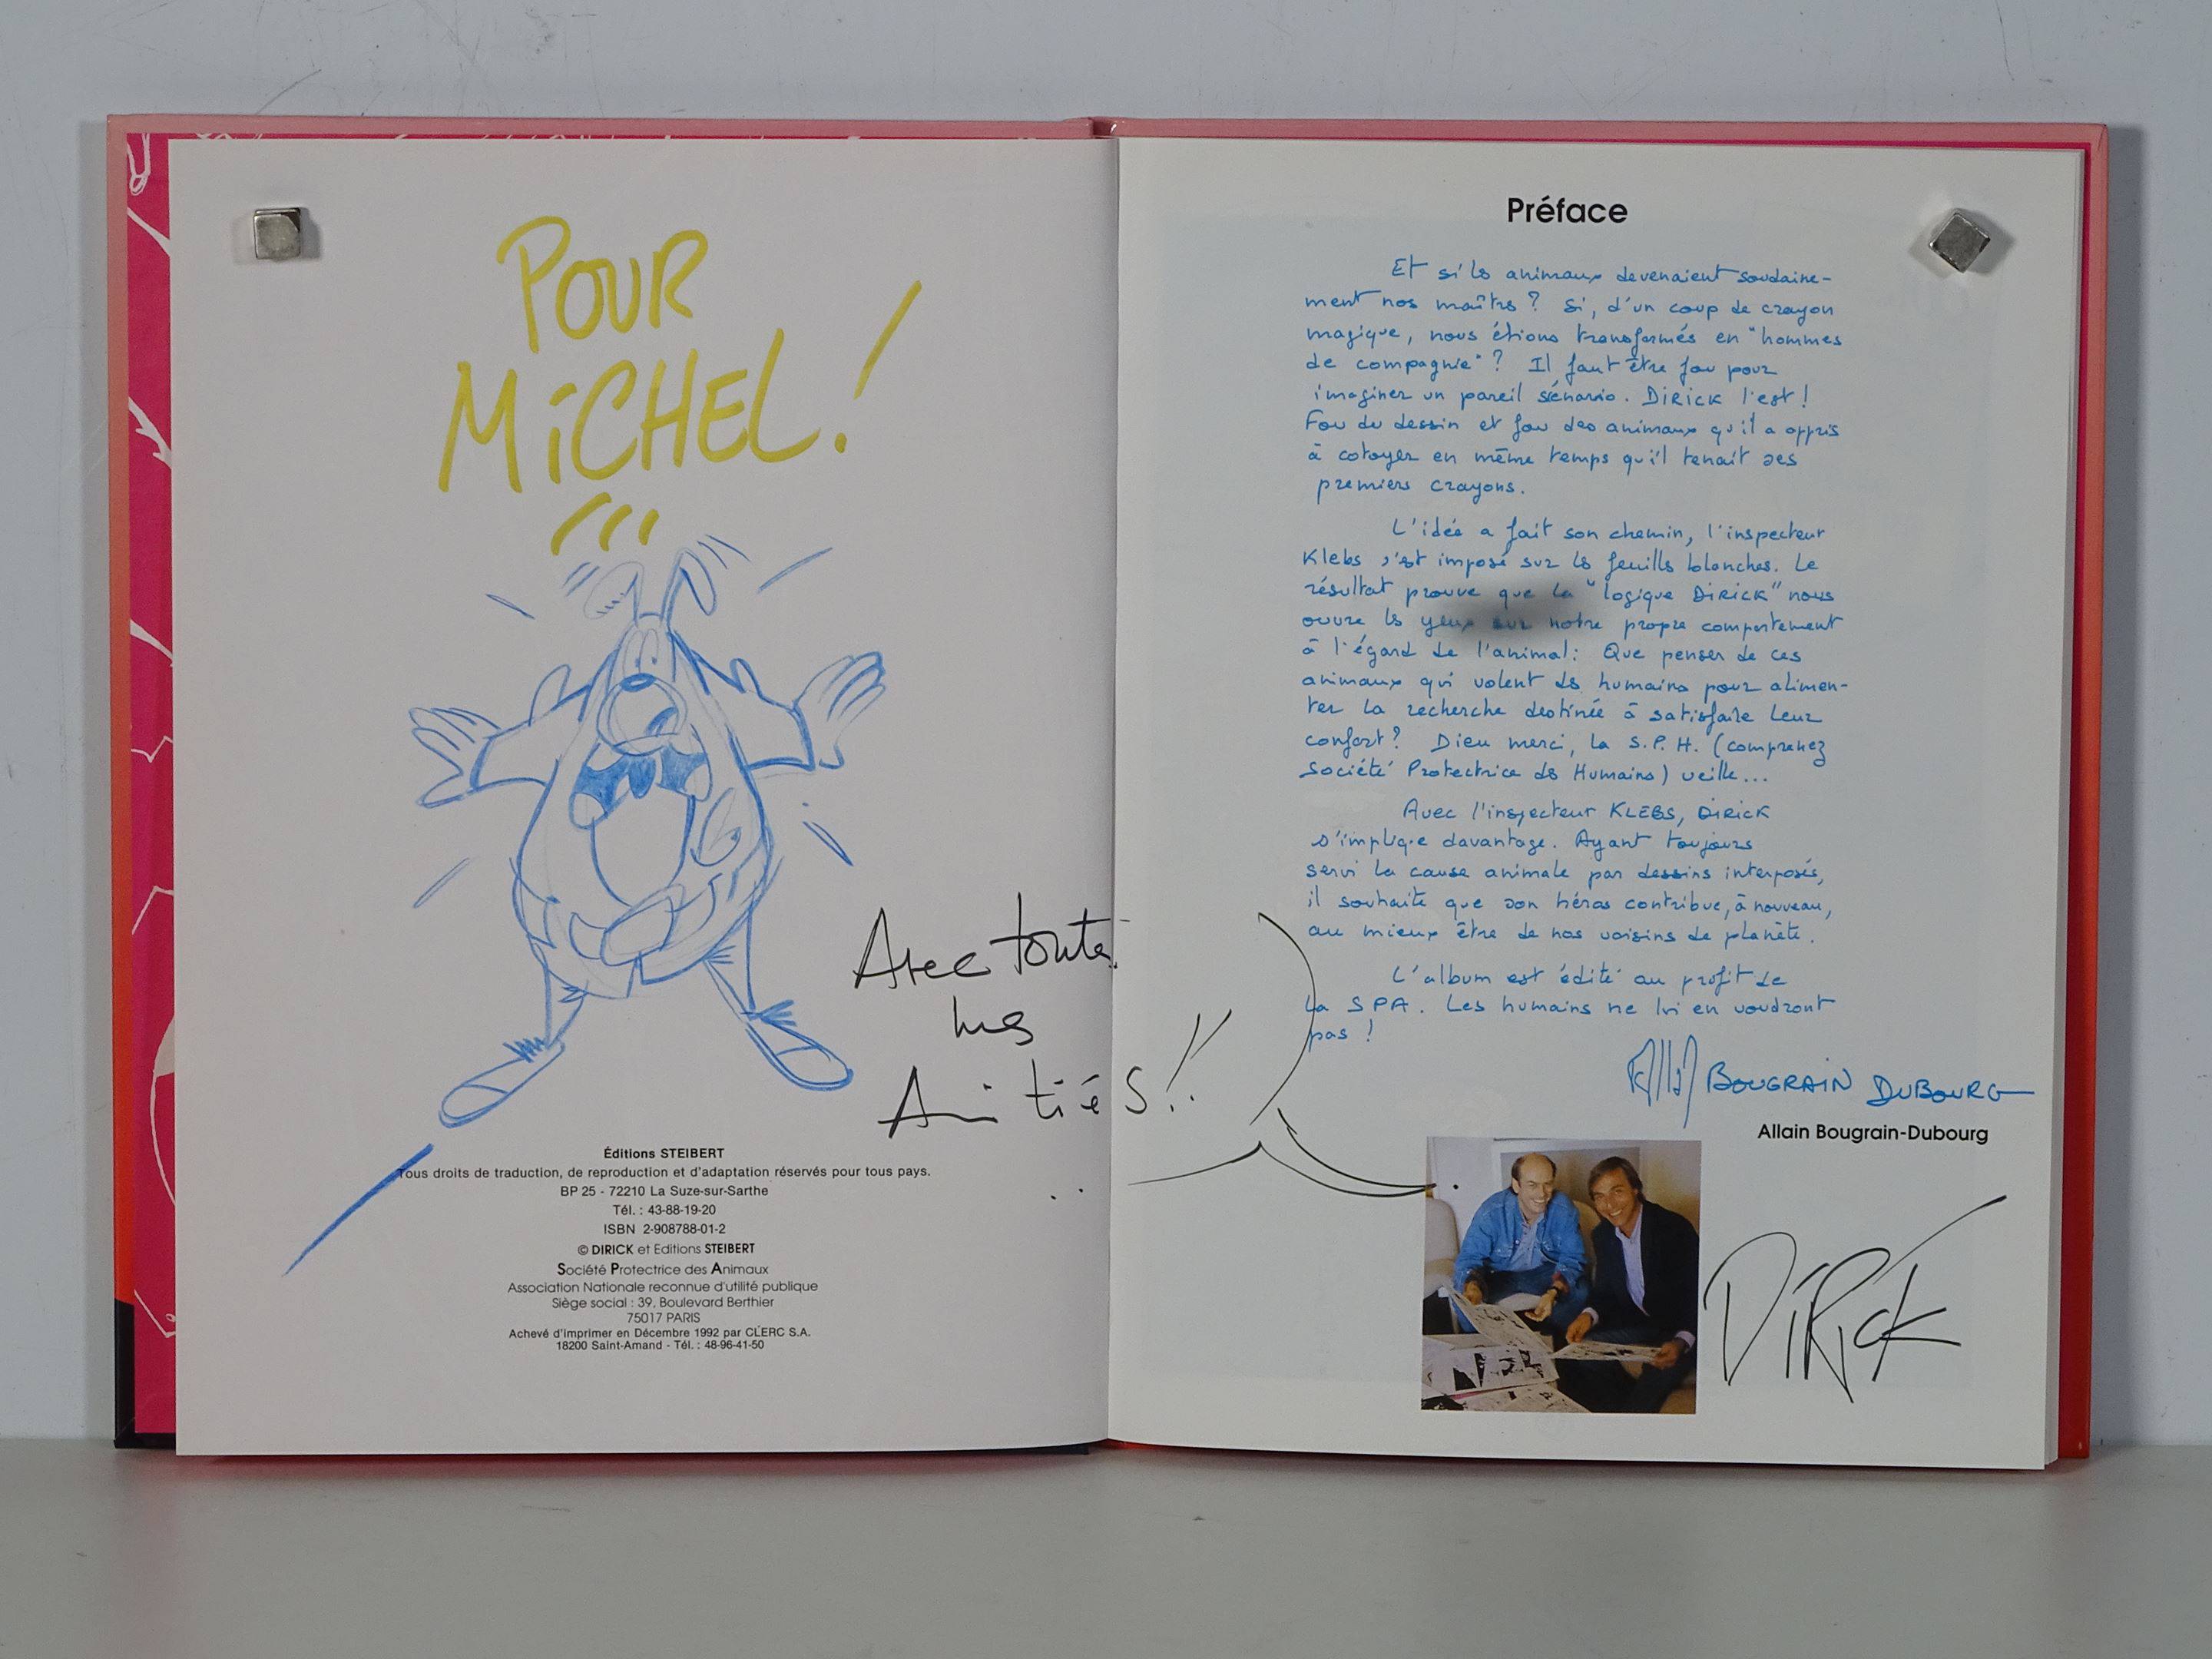 POUR
MiCHEL!
Avec toute
mes
Amitiés!!
Éditions STEIBERT
Tous droits de traduction, de reproduction et d'adaptation réservés pour tous pays.
BP 25 - 72210 La Suze-sur-Sarthe
Tél. : 43-88-19-20
ISBN 2-908788-01-2
© DIRICK et Editions STEIBERT
Société Protectrice des Animaux
Association Nationale reconnue d'utilité publique
Siège social : 39, Boulevard Berthier
75017 PARIS
Achevé d'imprimer en Décembre 1992 par CLERC S.A.
18200 Saint-Amand - Tél. : 48-96-41-50
Préface
Et si les animaux devenaient soudaine-
ment nos maîtres ? Si, d'un coup de crayon
magique, nous étions transformés en "hommes
de compagnie" ? Il faut être fou pour
imaginer un pareil scénario. DIRICK l'est !
Fou du dessin et fou des animaux qu'il a appris
à cotoyer en même temps qu'il tenait ses
premiers crayons.
L'idée a fait son chemin, l'inspecteur
Klebs s'est imposé sur les feuilles blanches. Le
résultat prouve que la "logique DIRICK" nous
ouvre les yeux sur notre propre comportement
à l'égard de l'animal : Que penser de ces
animaux qui volent des humains pour alimen-
ter la recherche destinée à satisfaire leur
confort ? Dieu merci, la S.P.H. (comprenez
Société Protectrice des Humains) veille...
Avec l'inspecteur KLEBS, DIRICK
s'implique davantage. Ayant toujours
servi la cause animale par dessins interposés,
il souhaite que son héros contribue, à nouveau,
au mieux être de nos voisins de planète.
L'album est édité au profit de
la SPA. Les humains ne lui en voudront
pas !
BOUGRAIN DUBOURG
Allain Bougrain-Dubourg
DIRICK